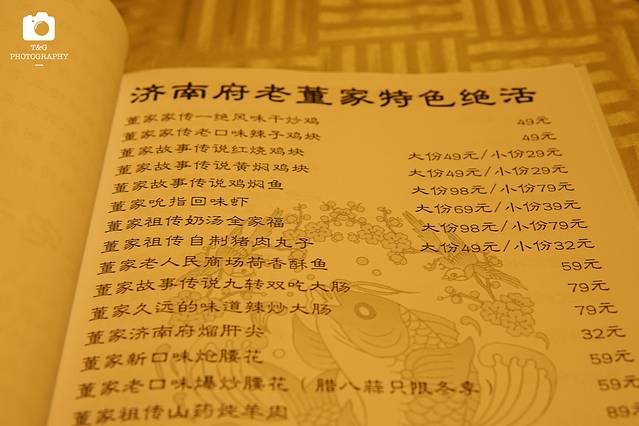 T&G
PHOTOGRAPHY
济南府老董家特色绝活
董家家传一绝风味干炒鸡 49元
董家家传老口味辣子鸡块 49元
董家故事传说红烧鸡块 大份49元/小份29元
董家故事传说黄焖鸡块 大份49元/小份29元
董家故事传说鸡焖鱼 大份98元/小份79元
董家吮指回味虾 大份69元/小份39元
董家祖传奶汤全家福 大份98元/小份79元
董家祖传自制猪肉丸子 大份49元/小份32元
董家老人民商场荷香酥鱼 59元
董家故事传说九转双吃大肠 79元
董家久远的味道辣炒大肠 79元
董家济南府熘肝尖 32元
董家新口味炝腰花 59元
董家老口味爆炒腰花（腊八蒜只限冬季） 59元
董家祖传山药炖羊肉 89元